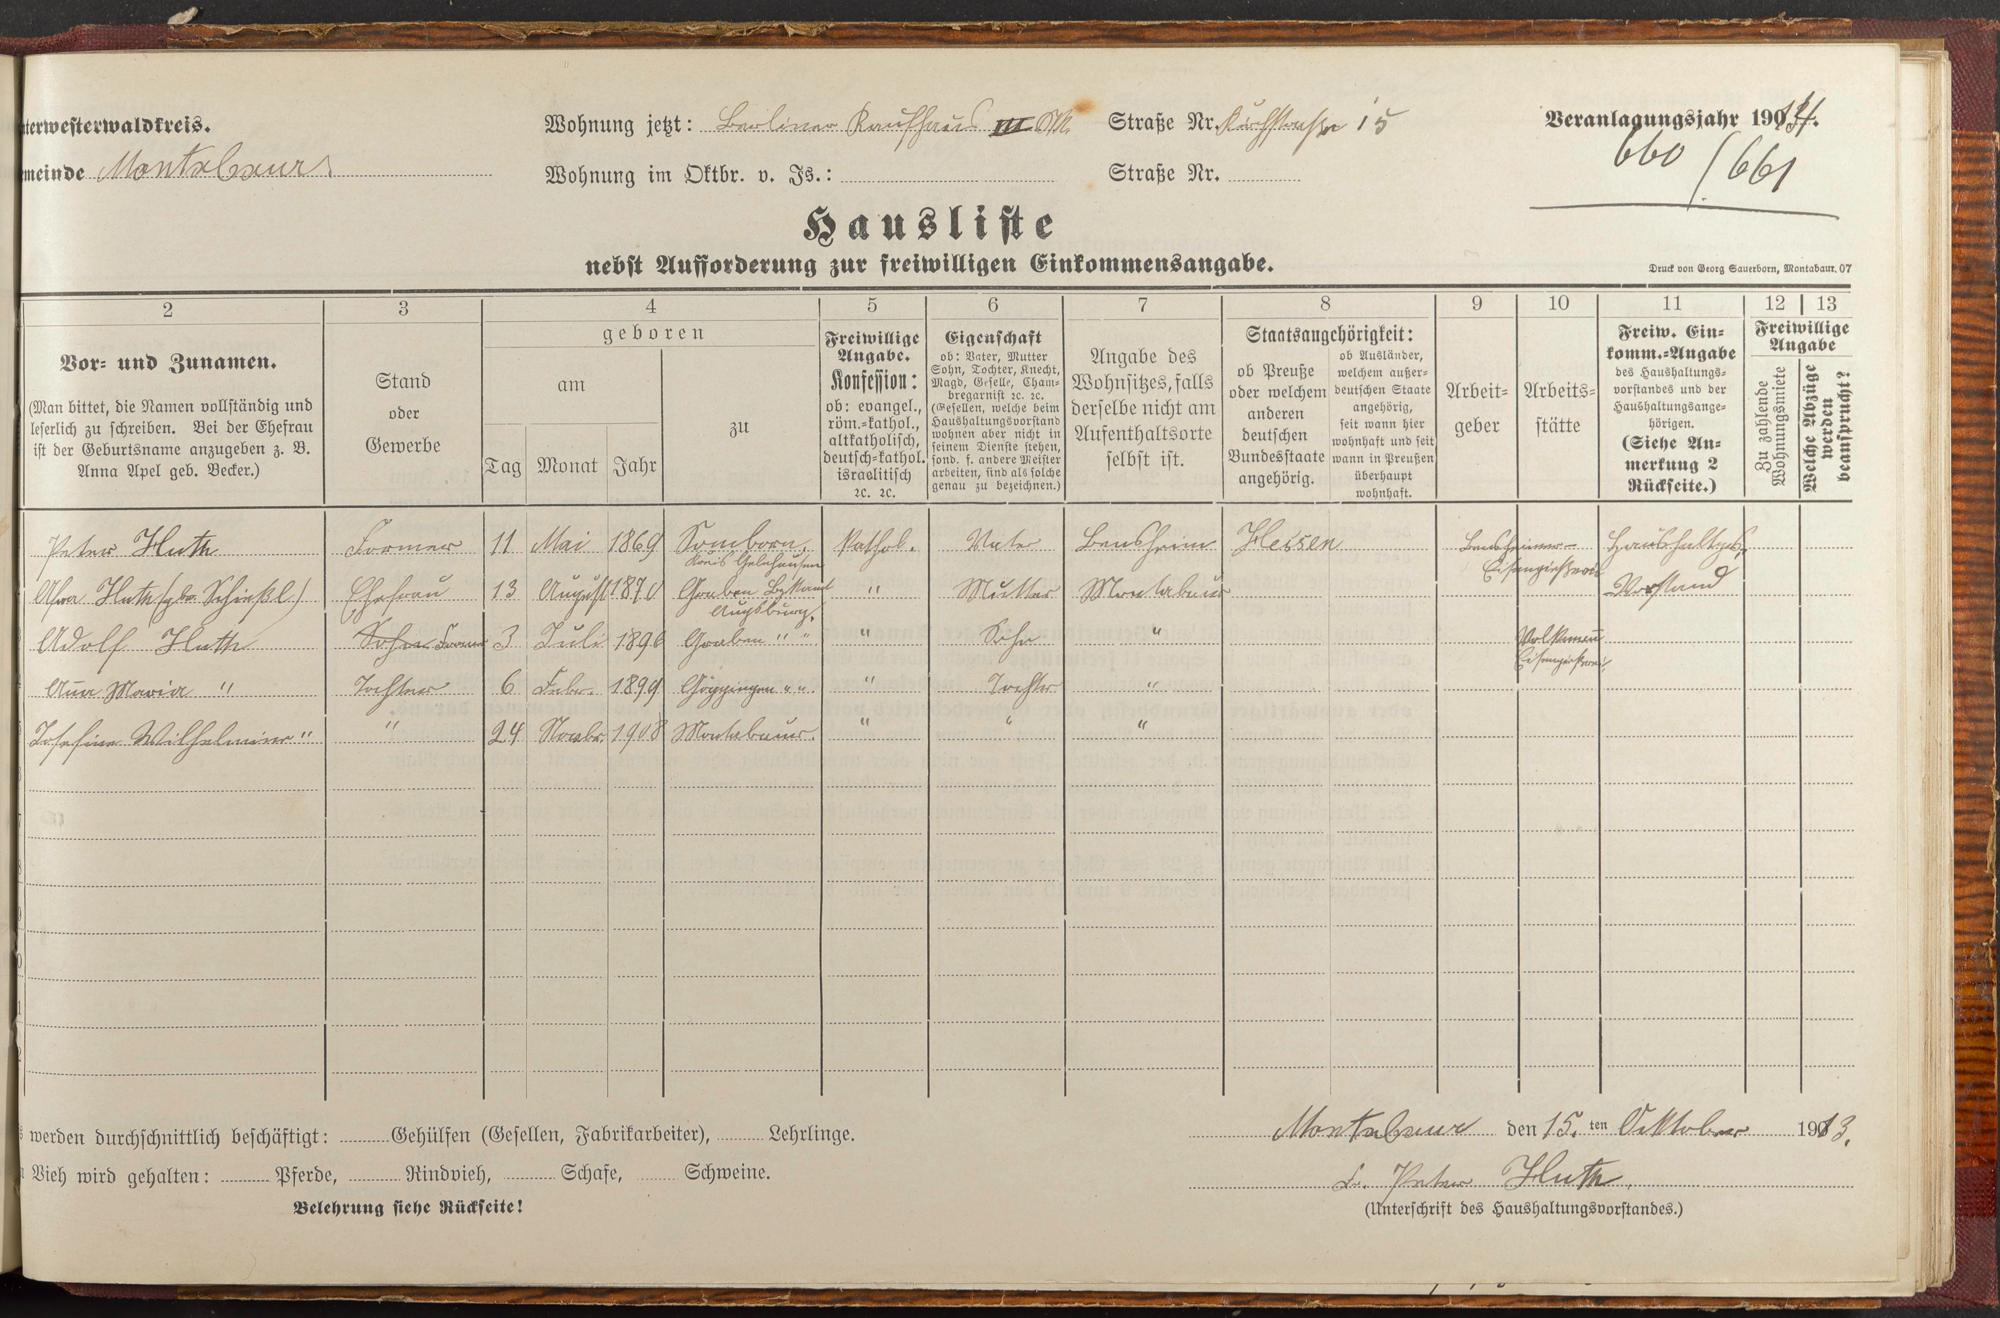 terwesterwaldkreis.
Wohnung jetzt: Berliner Kaufhaus M. Straße Nr. Kirchstraße 15
Veranlagungsjahr 1914.
meinde Montabaur
Wohnung im Oktbr. v. Js.: Straße Nr.
660/661
Hausliste
nebst Aufforderung zur freiwilligen Einkommensangabe.
Druck von Georg Sauerborn, Montabaur. 07
2 3 4 5 6 7 8 9 10 11 12 13
Vor- und Zunamen.
(Man bittet, die Namen vollständig und
leserlich zu schreiben. Bei der Ehefrau
ist der Geburtsname anzugeben z. B.
Anna Apel geb. Becker.)
Stand
oder
Gewerbe
geboren
am
Tag Monat Jahr
zu
Freiwillige
Angabe.
Konfession:
ob: evangel.,
röm.-kathol.,
altkatholisch,
deutsch-kathol.
israelitisch
ꝛc. ꝛc.
Eigenschaft
ob: Vater, Mutter
Sohn, Tochter, Knecht,
Magd, Geselle, Cham-
bregarnist ꝛc. ꝛc.
(Gesellen, welche beim
Haushaltungsvorstand
wohnen aber nicht in
seinem Dienste stehen,
sond. f. andere Meister
arbeiten, sind als solche
genau zu bezeichnen.)
Angabe des
Wohnsitzes, falls
derselbe nicht am
Aufenthaltsorte
selbst ist.
Staatsangehörigkeit:
ob Preuße
oder welchem
anderen
deutschen
Bundesstaate
angehörig.
ob Ausländer,
welchem außer-
deutschen Staate
angehörig,
seit wann hier
wohnhaft und seit
wann in Preußen
überhaupt
wohnhaft.
Arbeit-
geber
Arbeits-
stätte
Freiw. Ein-
komm.-Angabe
des Haushaltungs-
vorstandes und der
Haushaltungsange-
hörigen.
(Siehe An-
merkung 2
Rückseite.)
Freiwillige
Angabe
Zu zahlende
Wohnungsmiete
Welche Abzüge
werden
beansprucht?
Peter Huth Former 11 Mai 1869 Somborn, Kathol. Vater Bensheim Hessen Bensheimer- Haushaltgs.
Kreis Gelnhausen Eisengießerei
Afra Huth (gb. Schießl.) Ehefrau 13 August 1870 Graben Bzkamt " Mutter Montabaur Vorstand
Augsburg.
Adolf Huth Sohn Former 3 Juli 1896 Graben " " " Sohn "
Eisengießerei
Maria " Tochter 6 Febr. 1899 Göppingen " ". " Tochter "
Josefine Wilhelmine " " 24 Novbr. 1908 Montabaur. " " "
werden durchschnittlich beschäftigt: Gehülfen (Gesellen, Fabrikarbeiter), Lehrlinge.
Montabaur den 15. ten Oktober 1913.
Vieh wird gehalten: Pferde, Rindvieh, Schafe, Schweine.
Peter Huth.
Belehrung siehe Rückseite!
(Unterschrift des Haushaltungsvorstandes.)